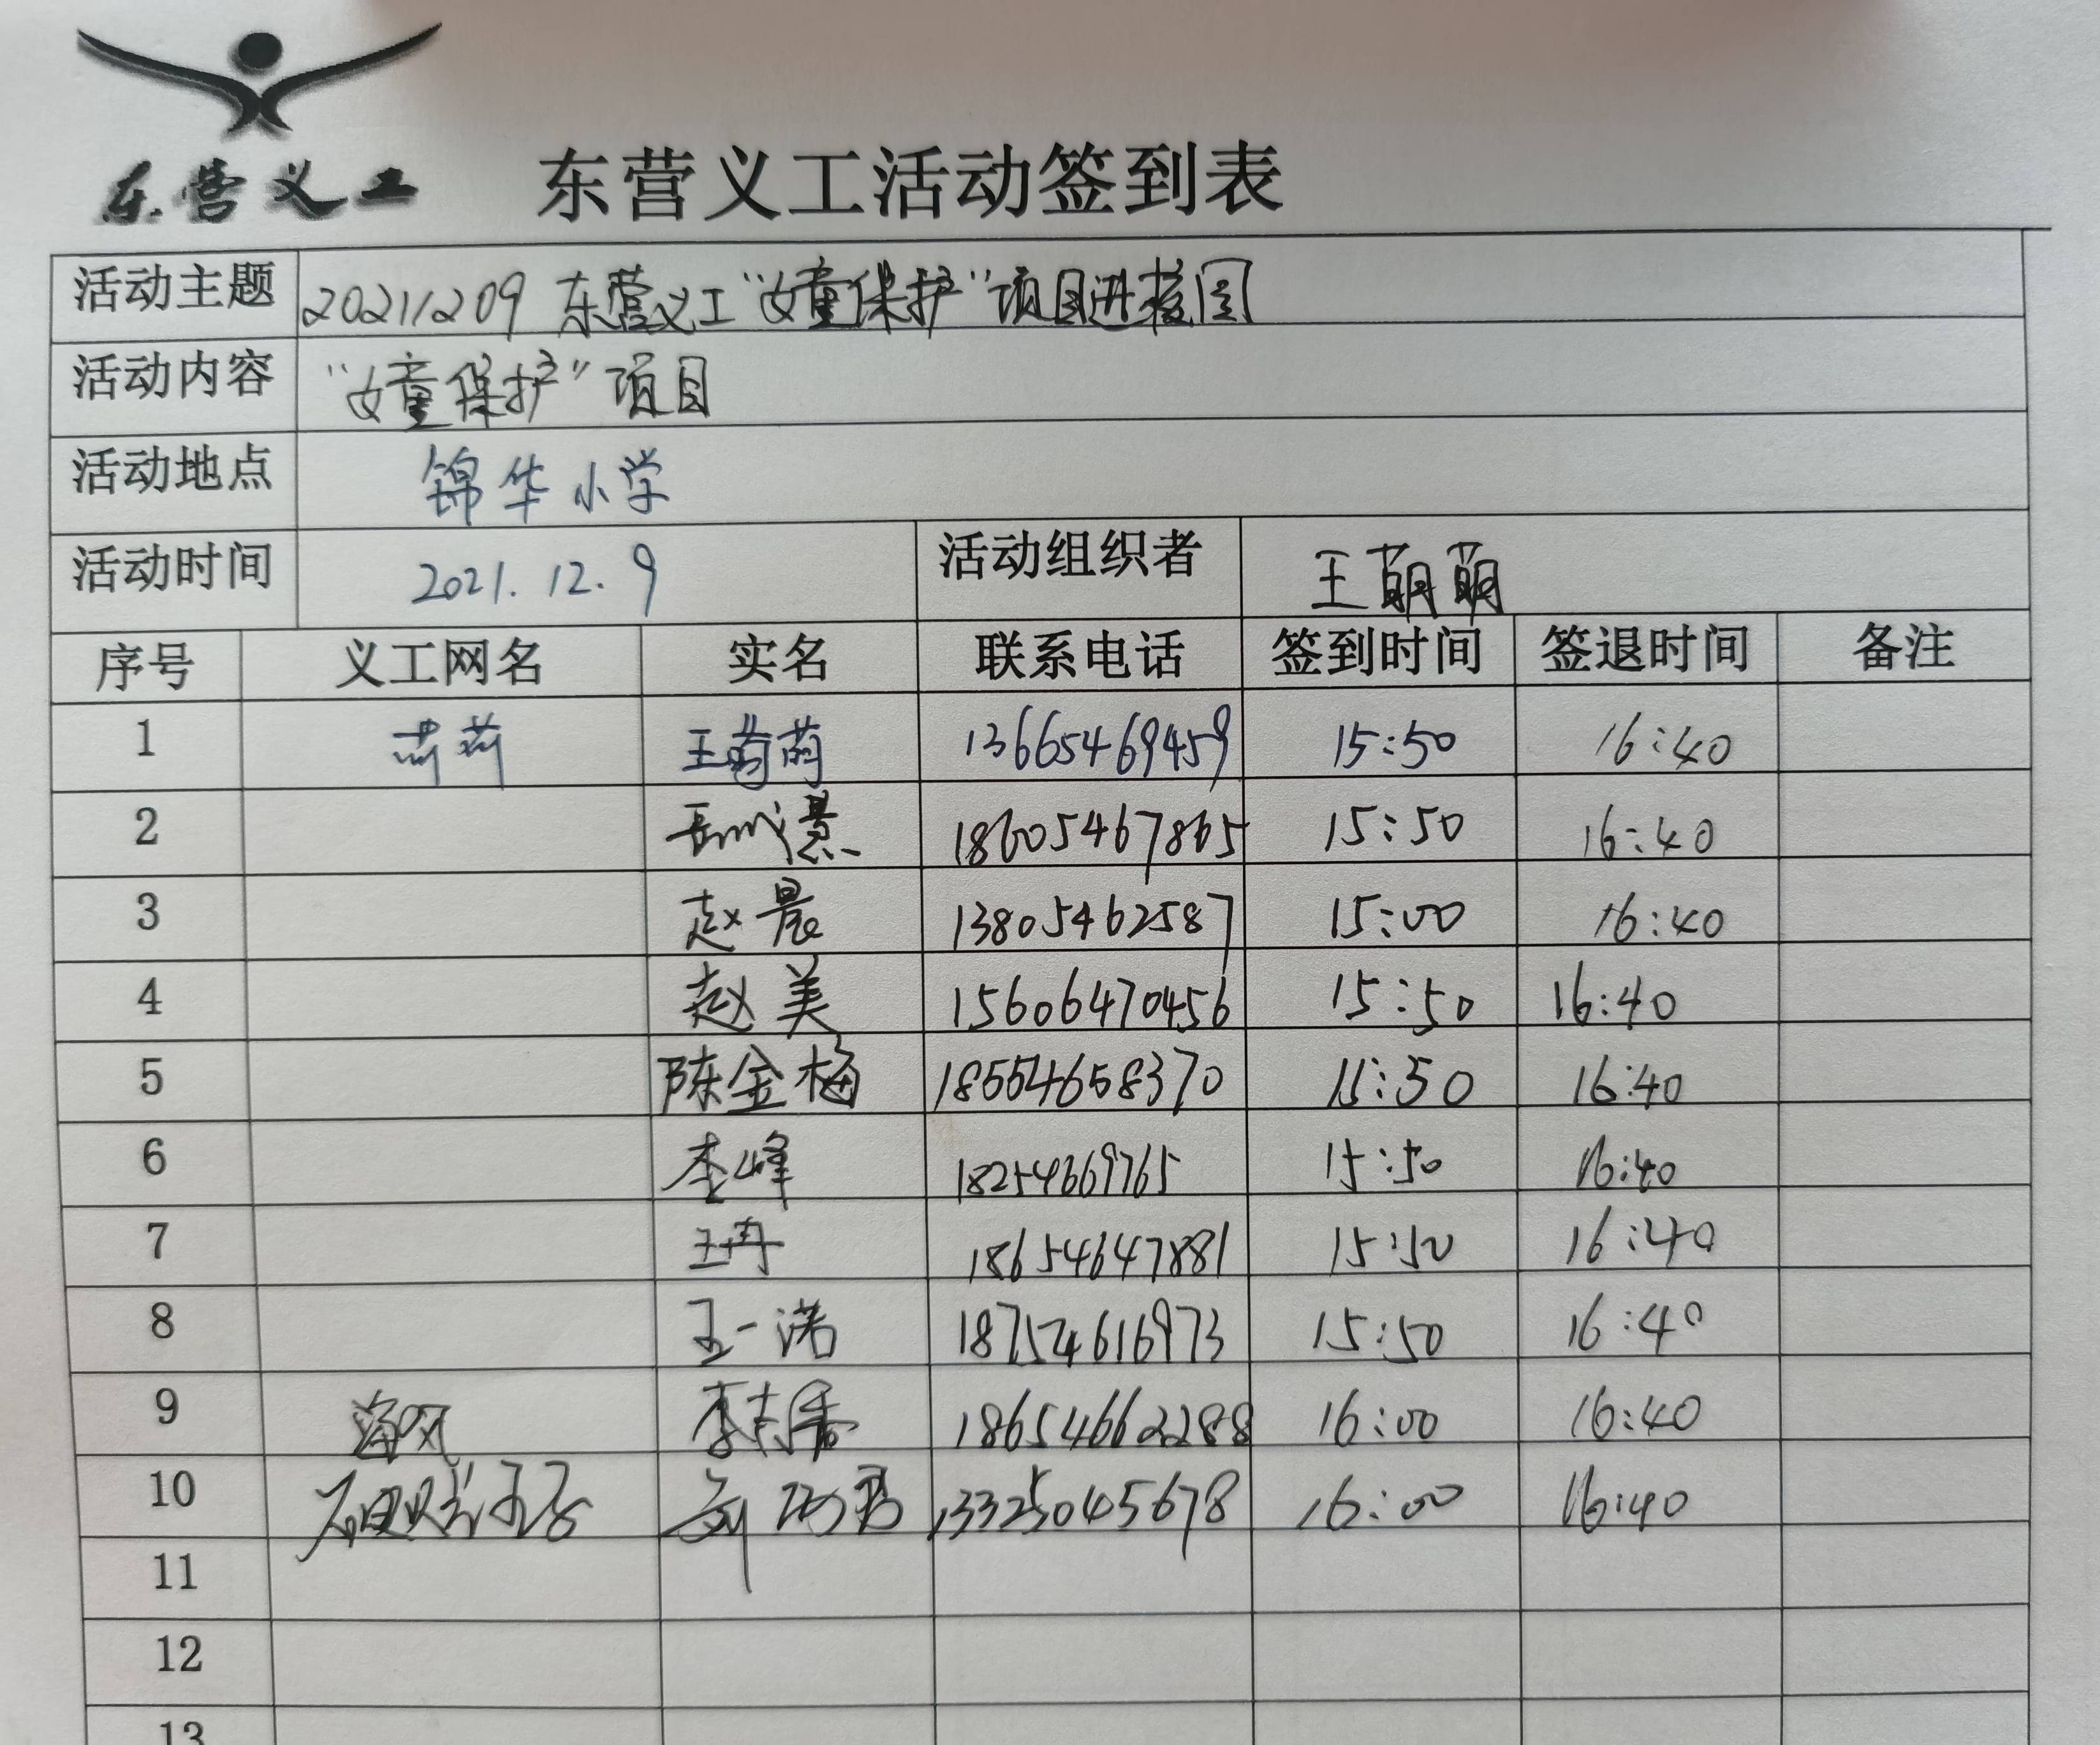 东营义工 东营义工活动签到表
活动主题 20211209 东营义工“女童保护”项目进校园
活动内容 “女童保护”项目
活动地点 锦华小学
活动时间 2021.12.9 活动组织者 王萌萌
序号 义工网名 实名 联系电话 签到时间 签退时间 备注
1 王萌萌 13665469459 15:50 16:40
2 18605467865 15:50 16:40
3 赵晨 13805462587 15:00 16:40
4 赵美 15606470456 15:50 16:40
5 陈金梅 18554658370 15:50 16:40
6 李峰 18254669765 15:50 16:40
7 王冉 18654647881 15:50 16:40
8 王一诺 18754616973 15:50 16:40
9 海风 18654662288 16:00 16:40
10 13325045678 16:00 16:40
11
12
13